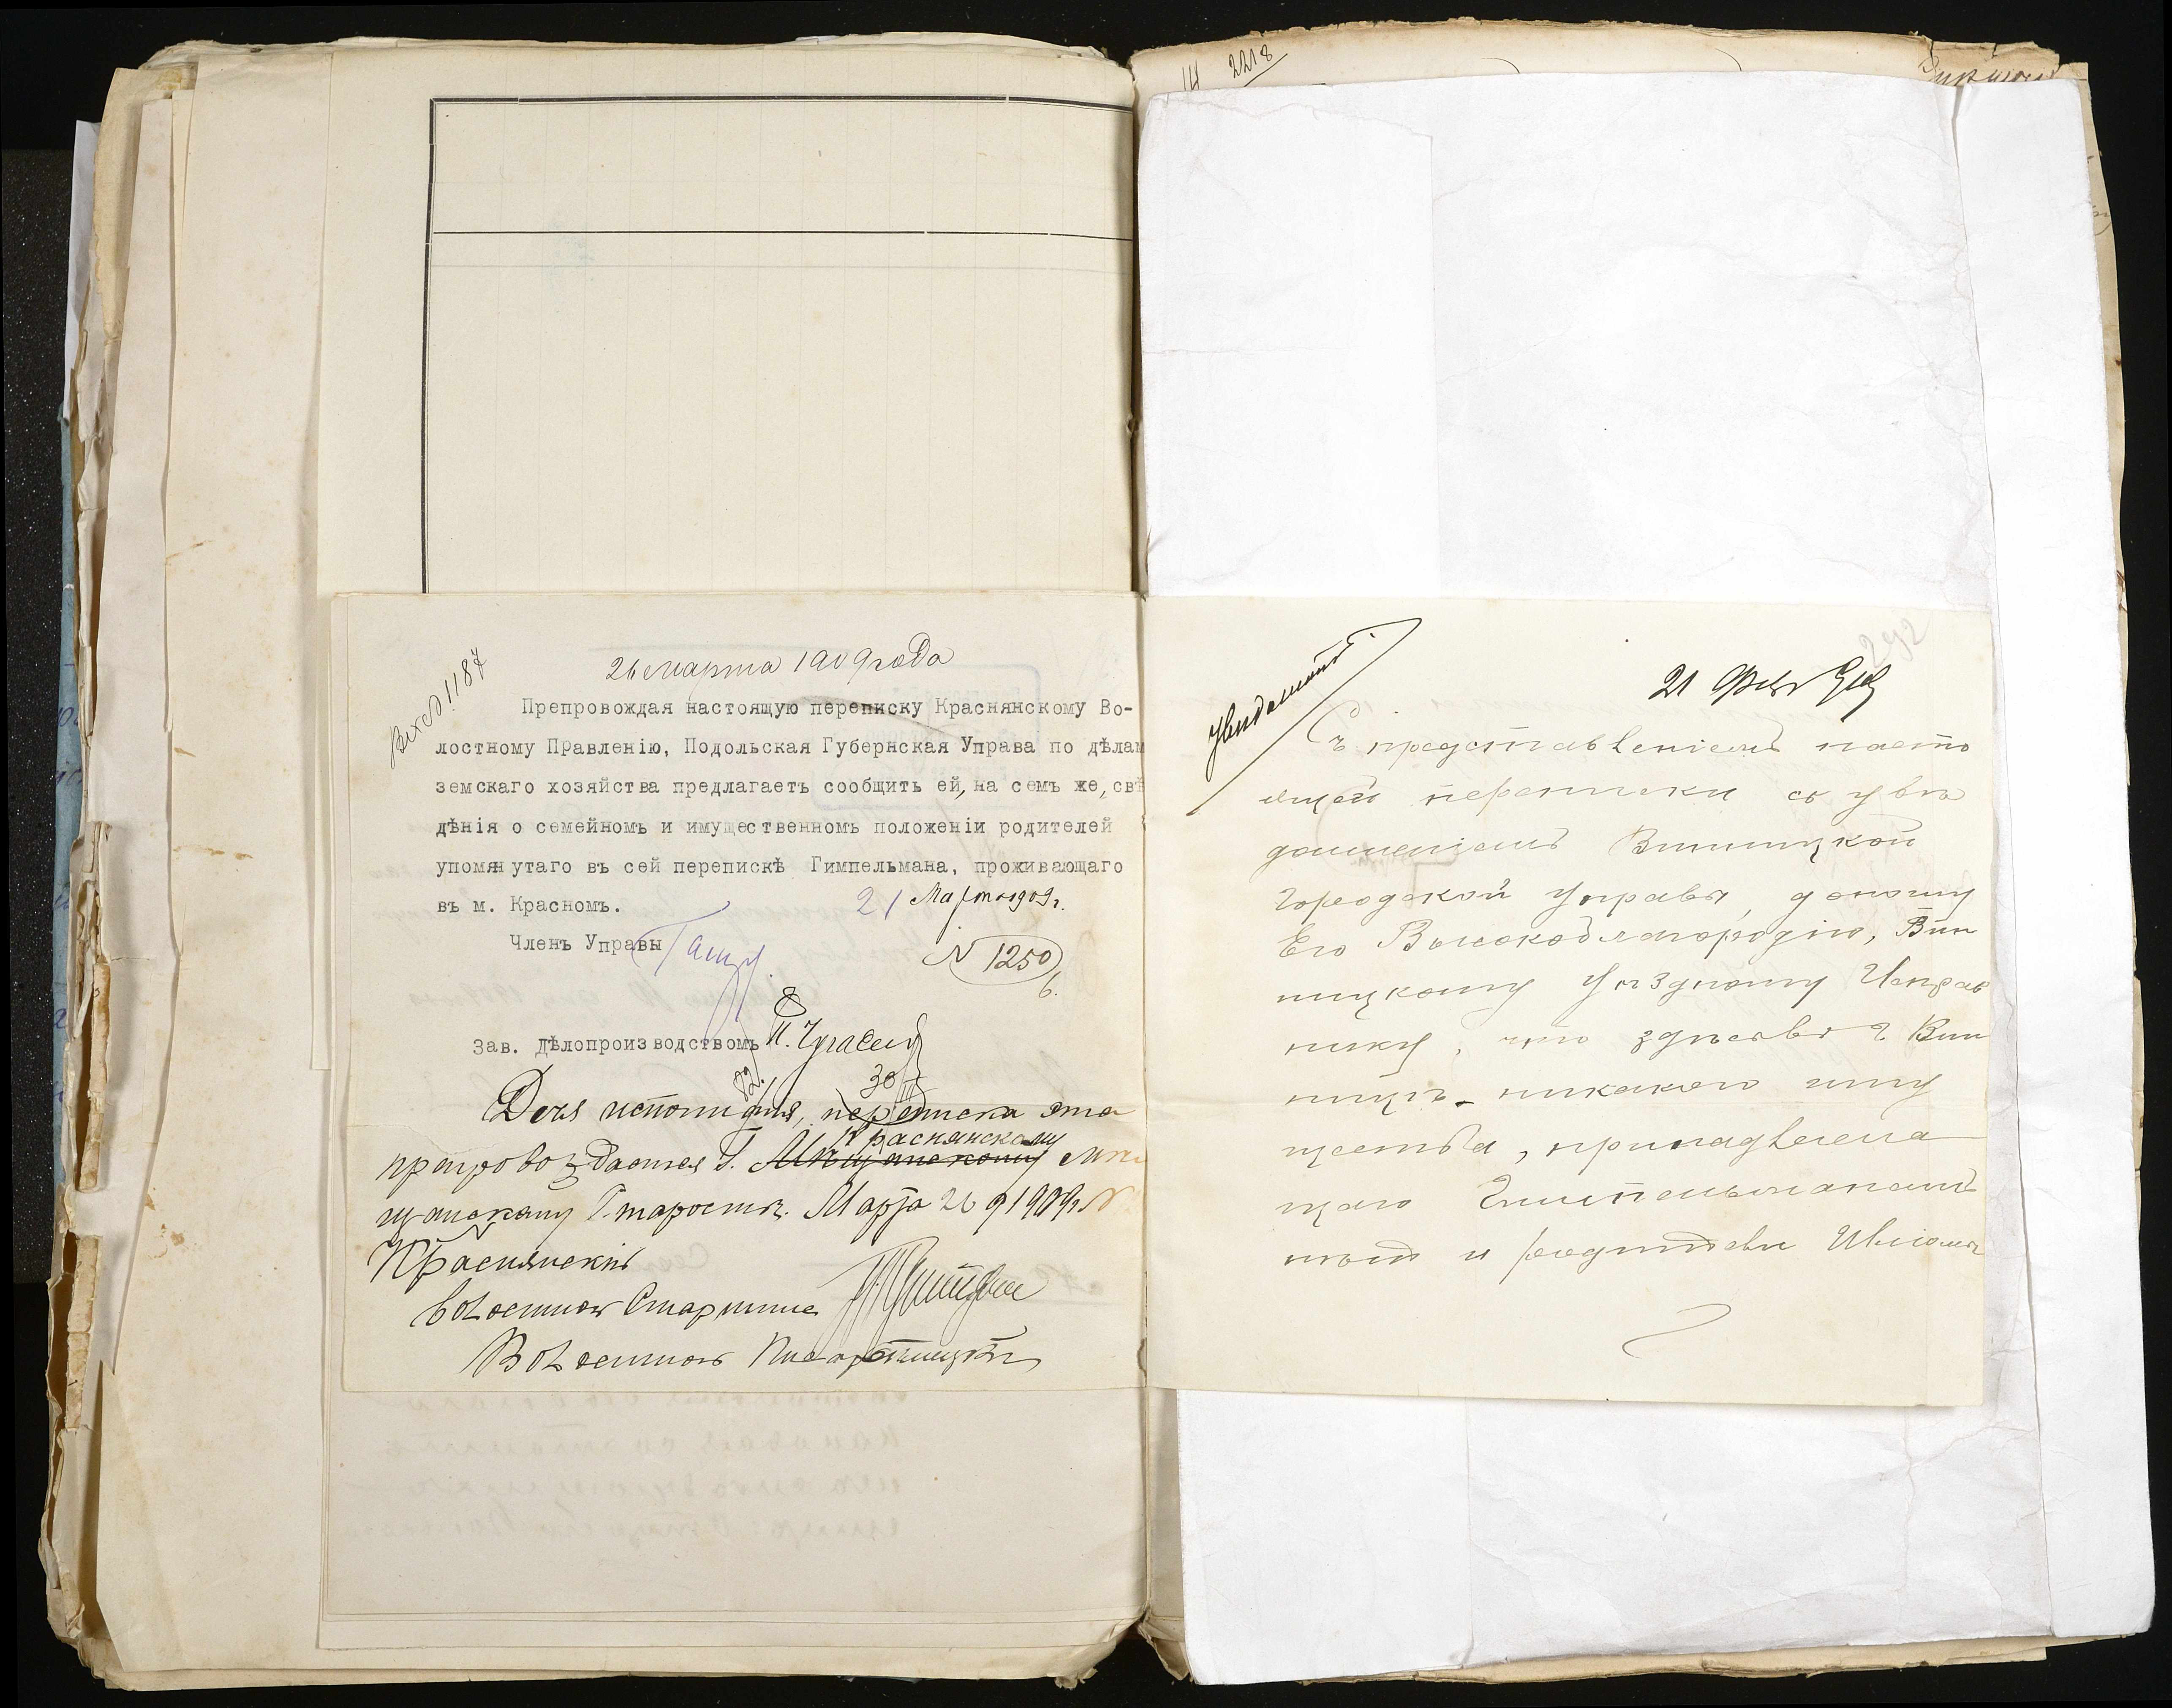 Вход. 1187
26 марта 1909 года
Препровождая настоящую переписку Краснянскому Во-
лостному Правленію, Подольская Губернская Управа по дѣлам
земскаго хозяйства предлагаетъ сообщить ей, на семъ же, свѣ
дѣнія о семейномъ и имущественномъ положеніи родителей
упомянутаго въ сей перепискѣ Гимпельмана, проживающаго
въ м. Красномъ.
21 Марта 1909 г.
Членъ Управы
N 1250
Зав. Дѣлопроизводствомъ
Для исполненія, переписка эта
препровождается Г. Мѣщанскому Краснянскому Мѣ
щанскому Старостѣ. Марта 26 д 1909 г. N
Краснянскій
Волостной Старшина
Волостной Писарь
2218
292
21 Фев
Съ представленіемъ насто
ящей переписки съ увѣ
домленіемъ Винницкой
Городской Управы, доношу
Его Высокоблагородію, Вин
ницкому Уѣздному Исправ
нику, что здѣсь въ г. Вин
ницѣ никакого иму
щества, принадлежа
щаго Гимпельманамъ
нѣтъ и